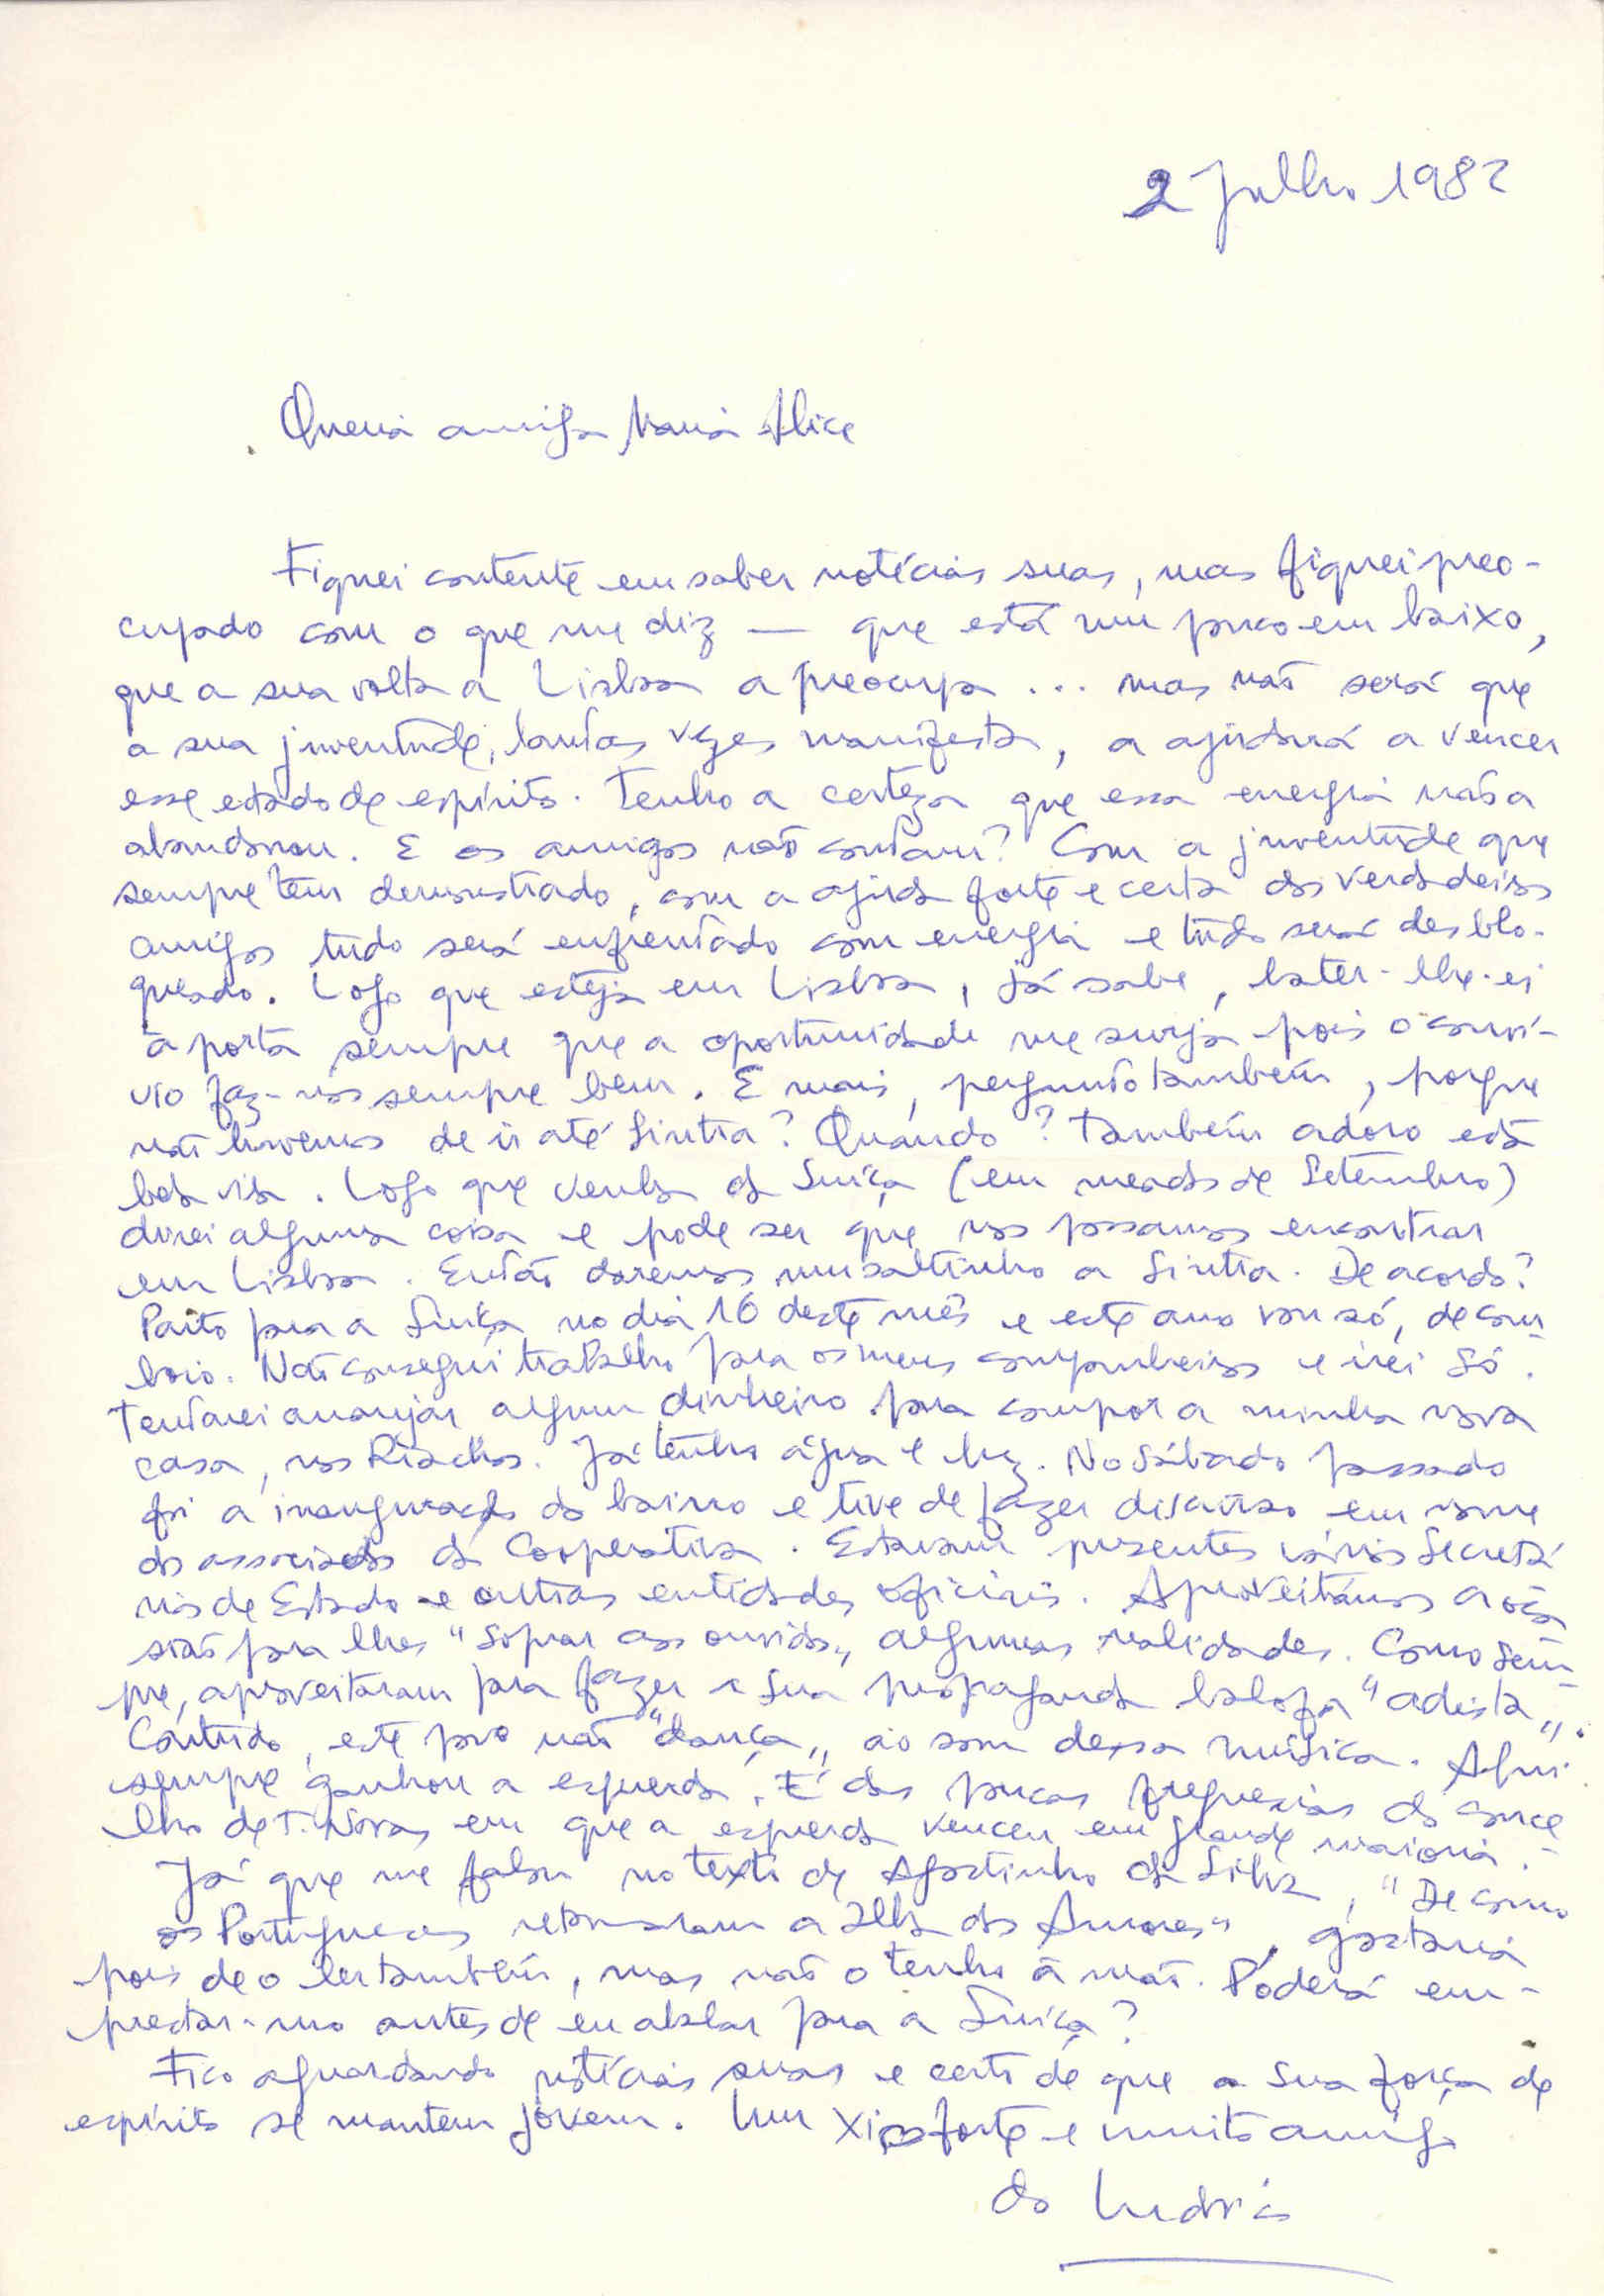 2 Julho 1982
Querida amiga Maria Alice
Fiquei contente em saber notícias suas, mas fiquei preo-
cupado com o que me diz — que está um pouco em baixo,
que a sua volta a Lisboa a preocupa ... mas não será que
a sua juventude, tantas vezes manifesta, a ajudará a vencer
esse estado de espírito. Tenho a certeza que essa energia não a
abandonou. E os amigos não contam? Com a juventude que
sempre tem demonstrado, com a ajuda forte e certa dos verdadeiros
amigos tudo será enfrentado com energia e tudo será desblo-
queado. Logo que esteja em Lisboa, já sabe, bater-lhe-ei
à porta sempre que a oportunidade me surja pois o conví-
vio faz-nos sempre bem. E mais, pergunto também, porque
não havemos de ir até Sintra? Quando? Também adoro essa
bela vila. Logo que venha da Suíça (em meados de Setembro)
direi alguma coisa e pode ser que nos possamos encontrar
em Lisboa. Então daremos um saltinho a Sintra. De acordo?
Parto para a Suíça no dia 16 deste mês e este ano vou só, de com-
boio. Não consegui trabalho para os meus companheiros e irei só.
Tentarei arranjar algum dinheiro para compor a minha nova
casa, nos Riachos. Já tenho água e luz. No Sábado passado
foi a inauguração do bairro e tive de fazer discurso em nome
dos associados da Cooperativa. Estavam presentes vários Secretá-
rios de Estado e outras entidades oficiais. Aproveitámos a oca
sião para lhes "soprar aos ouvidos" algumas realidades. Como sem-
pre, aproveitaram para fazer a sua propaganda balofa "adista".
Contudo, este povo não "dança" ao som dessa música. Aqui
sempre ganhou a esquerda. É das poucas freguesias do conce
lho de T. Novas em que a esquerda venceu em grande maioria.-
Já que me falou no texto de Agostinho da Silva, "De como
os Portugueses retomaram a Ilha dos Amores", gostaria
pois de o ler também, mas não o tenho à mão. Poderá em-
prestar-mo antes de eu abalar para a Suíça?
Fico aguardando notícias suas e certo de que a sua força de
espírito se mantem jovem. Um Xi forte e muito amigo
do